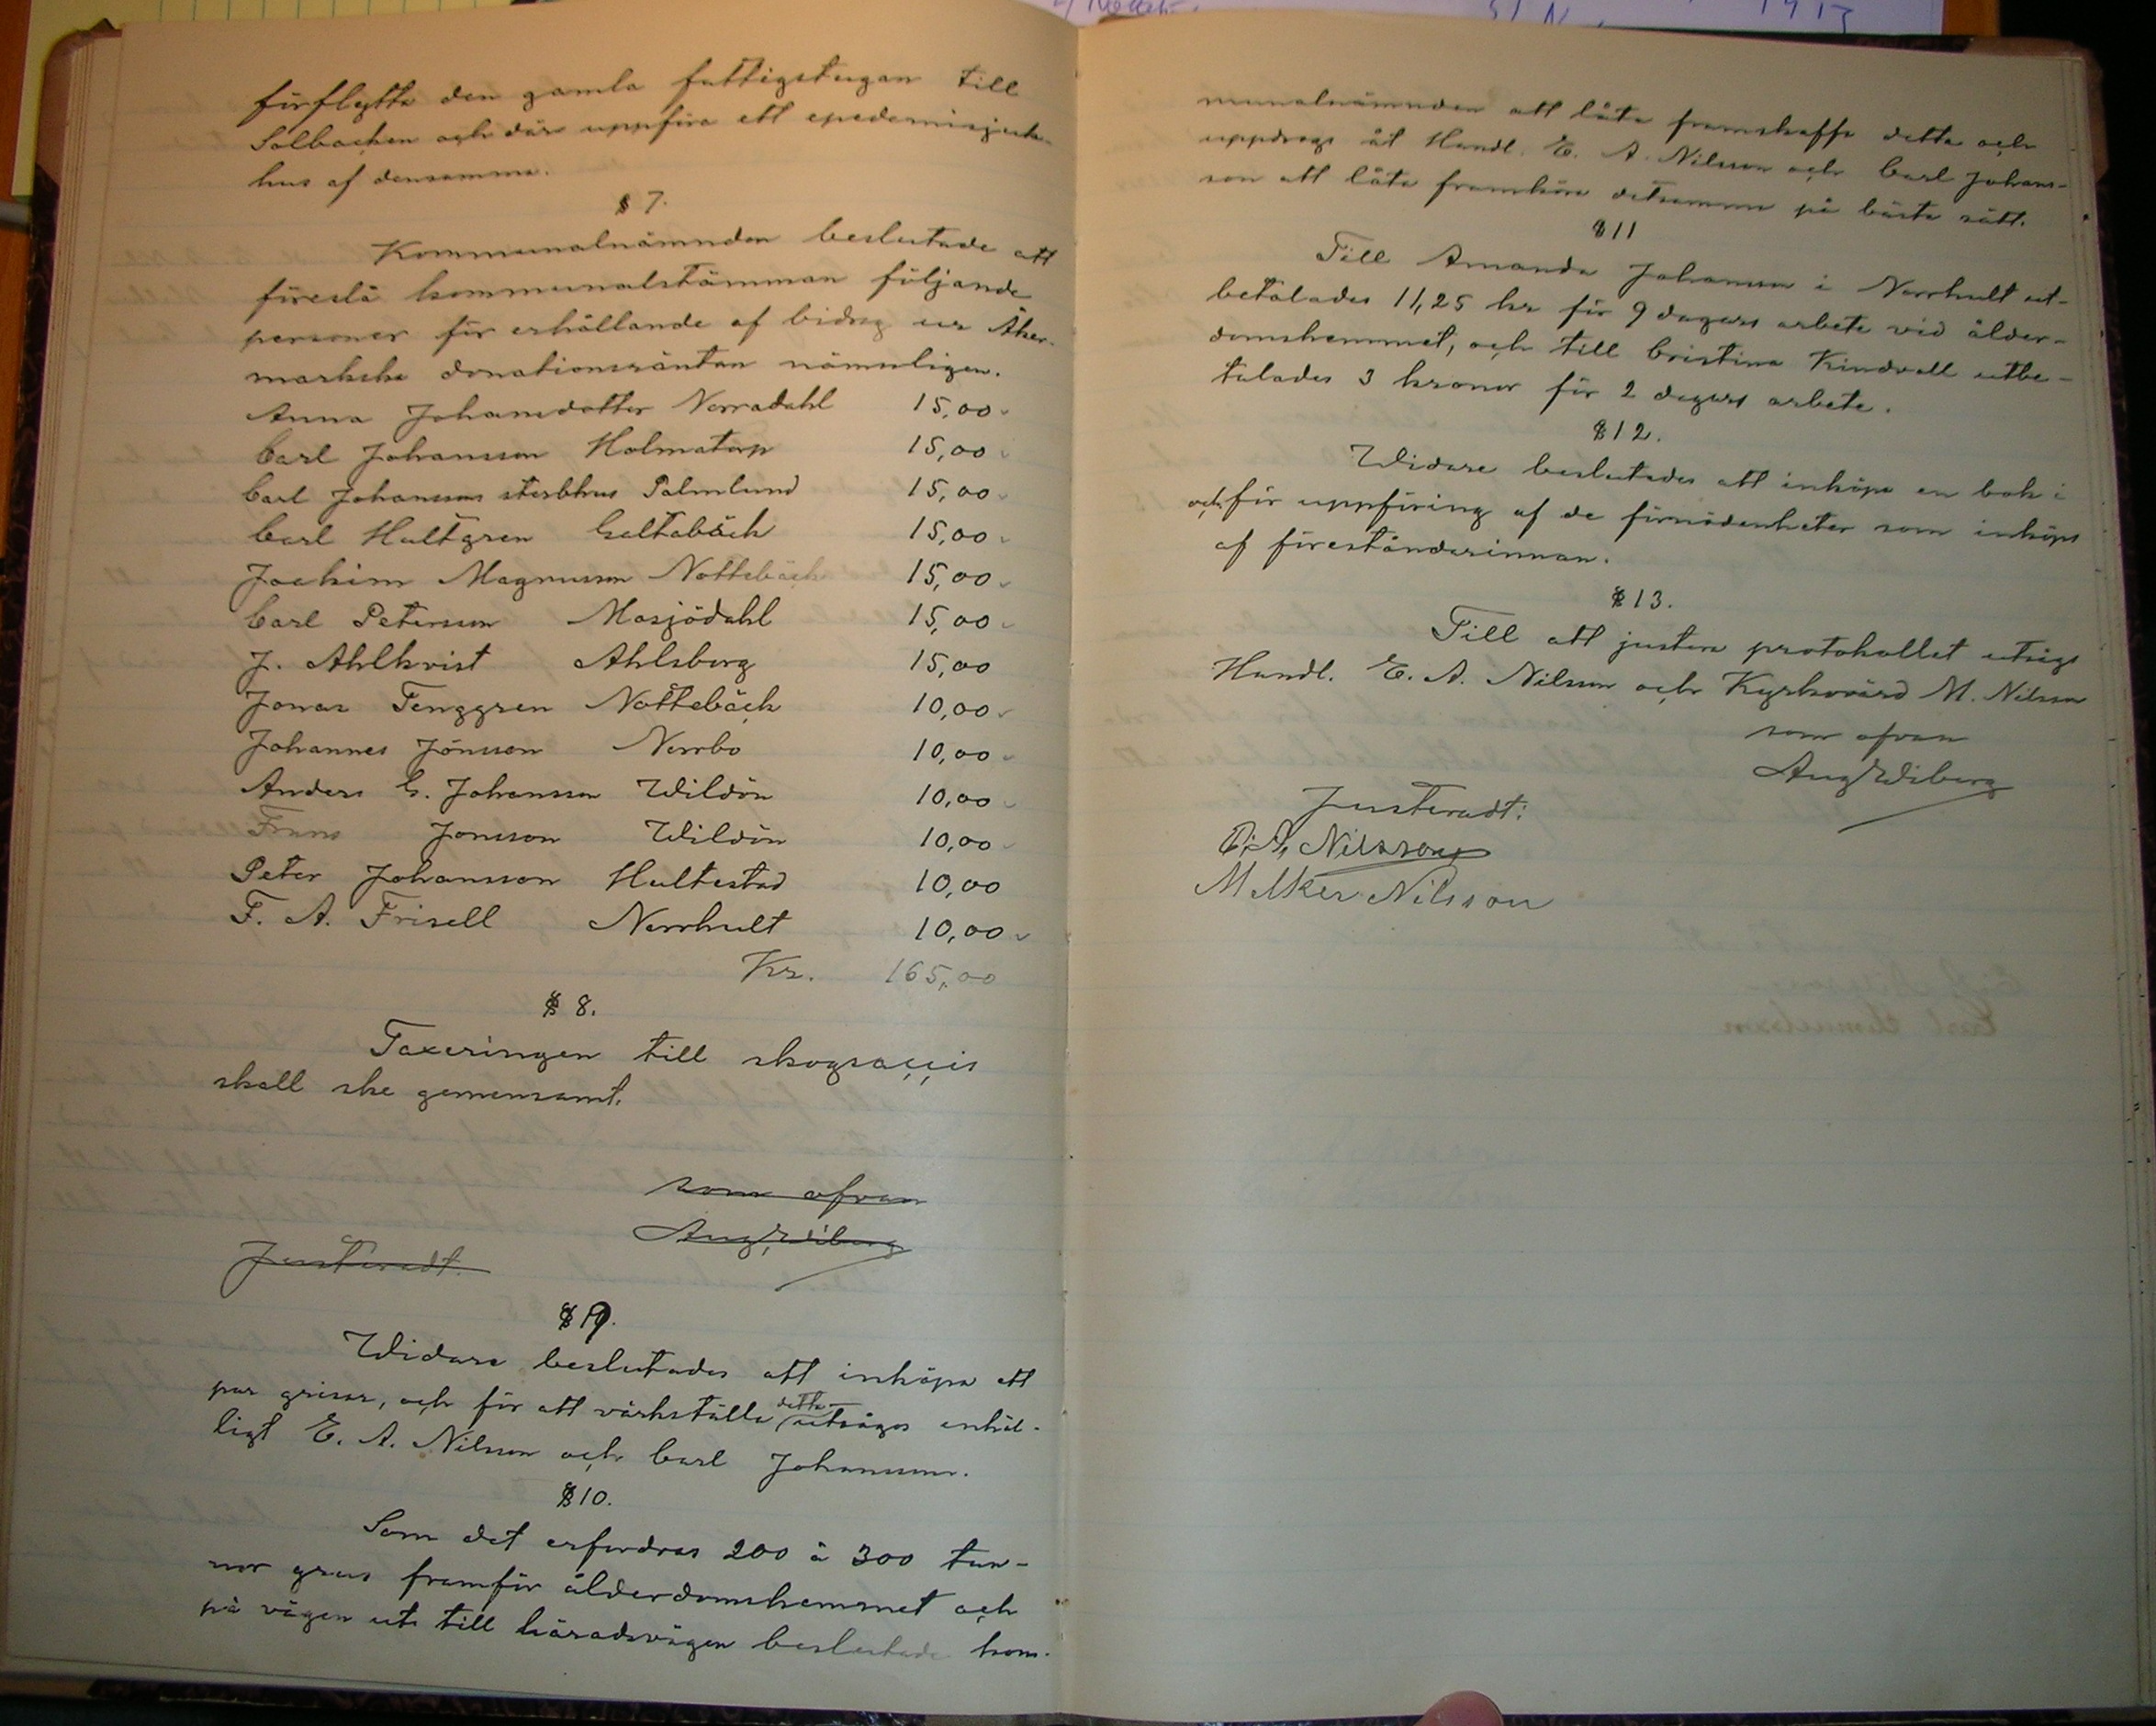 förflytta den gamla fattigstugan till
Solbacken och där uppföra ett epedemisjuk-
hus af densamma.
§ 7.
Kommunalnämnden beslutade att
föreslå kommunalstämman följande
personer för erhållande af bidrag ur Åker-
markska donationsräntan nämnligen.
Anna Johansdotter Norradahl 15,00
Carl Johansson Holmatorp 15,00
Carl Johanssons sterbhus Palmlund 15,00
Carl Hultgren Galtabäck 15,00
Joachim Magnusson Nottebäck 15,00
Carl Peterson Masjödahl 15,00
J. Ahlkvist Ahlsberg 15,00
Jonas Tenggren Nottebäck 10,00
Johannes Jönsson Norrbo 10,00
Anders G. Johansson Wildön 10,00
Frans Jonsson Wildön 10,00
Peter Johansson Hultestad 10,00
F. A. Frisell Norrhult 10,00
Kr. 165,00
§ 8.
Taxeringen till skogsaccis
skall ske gemensamt.
som ofvan
Aug Wiberg
Justeradt.
§ 9.
Widare beslutades att inköpa ett
par grisar, och för att värkställa detta utsågos enhäl-
ligt E. A. Nilsson och Carl Johansson.
§ 10.
Som det erfordras 200 à 300 tun-
nor grus framför ålderdomshemmet och
på vägen ut till häradsvägen beslutade kom-
munalnämnden att låta framskaffa detta och
uppdrogs åt Handl. E. A. Nilsson och Carl Johans-
son att låta framköra detsamma på bästa sätt.
§ 11
Till Amanda Johansson i Norrhult ut-
betalades 11,25 kr för 9 dagars arbete vid ålder-
domshemmet, och till Cristina Kindvall utbe-
talades 3 kronor för 2 dagars arbete.
§ 12.
Widare beslutades att inköpa en bok i
och för uppföring af de förnödenheter som inköps
af föreståndarinnan.
§ 13.
Till att justera protokollet utsågs
Handl. E. A. Nilsson och Kyrkovärd M. Nilsson
som ofvan
Aug Wiberg
Justeradt:
E. A. Nilsson
Melker Nilsson